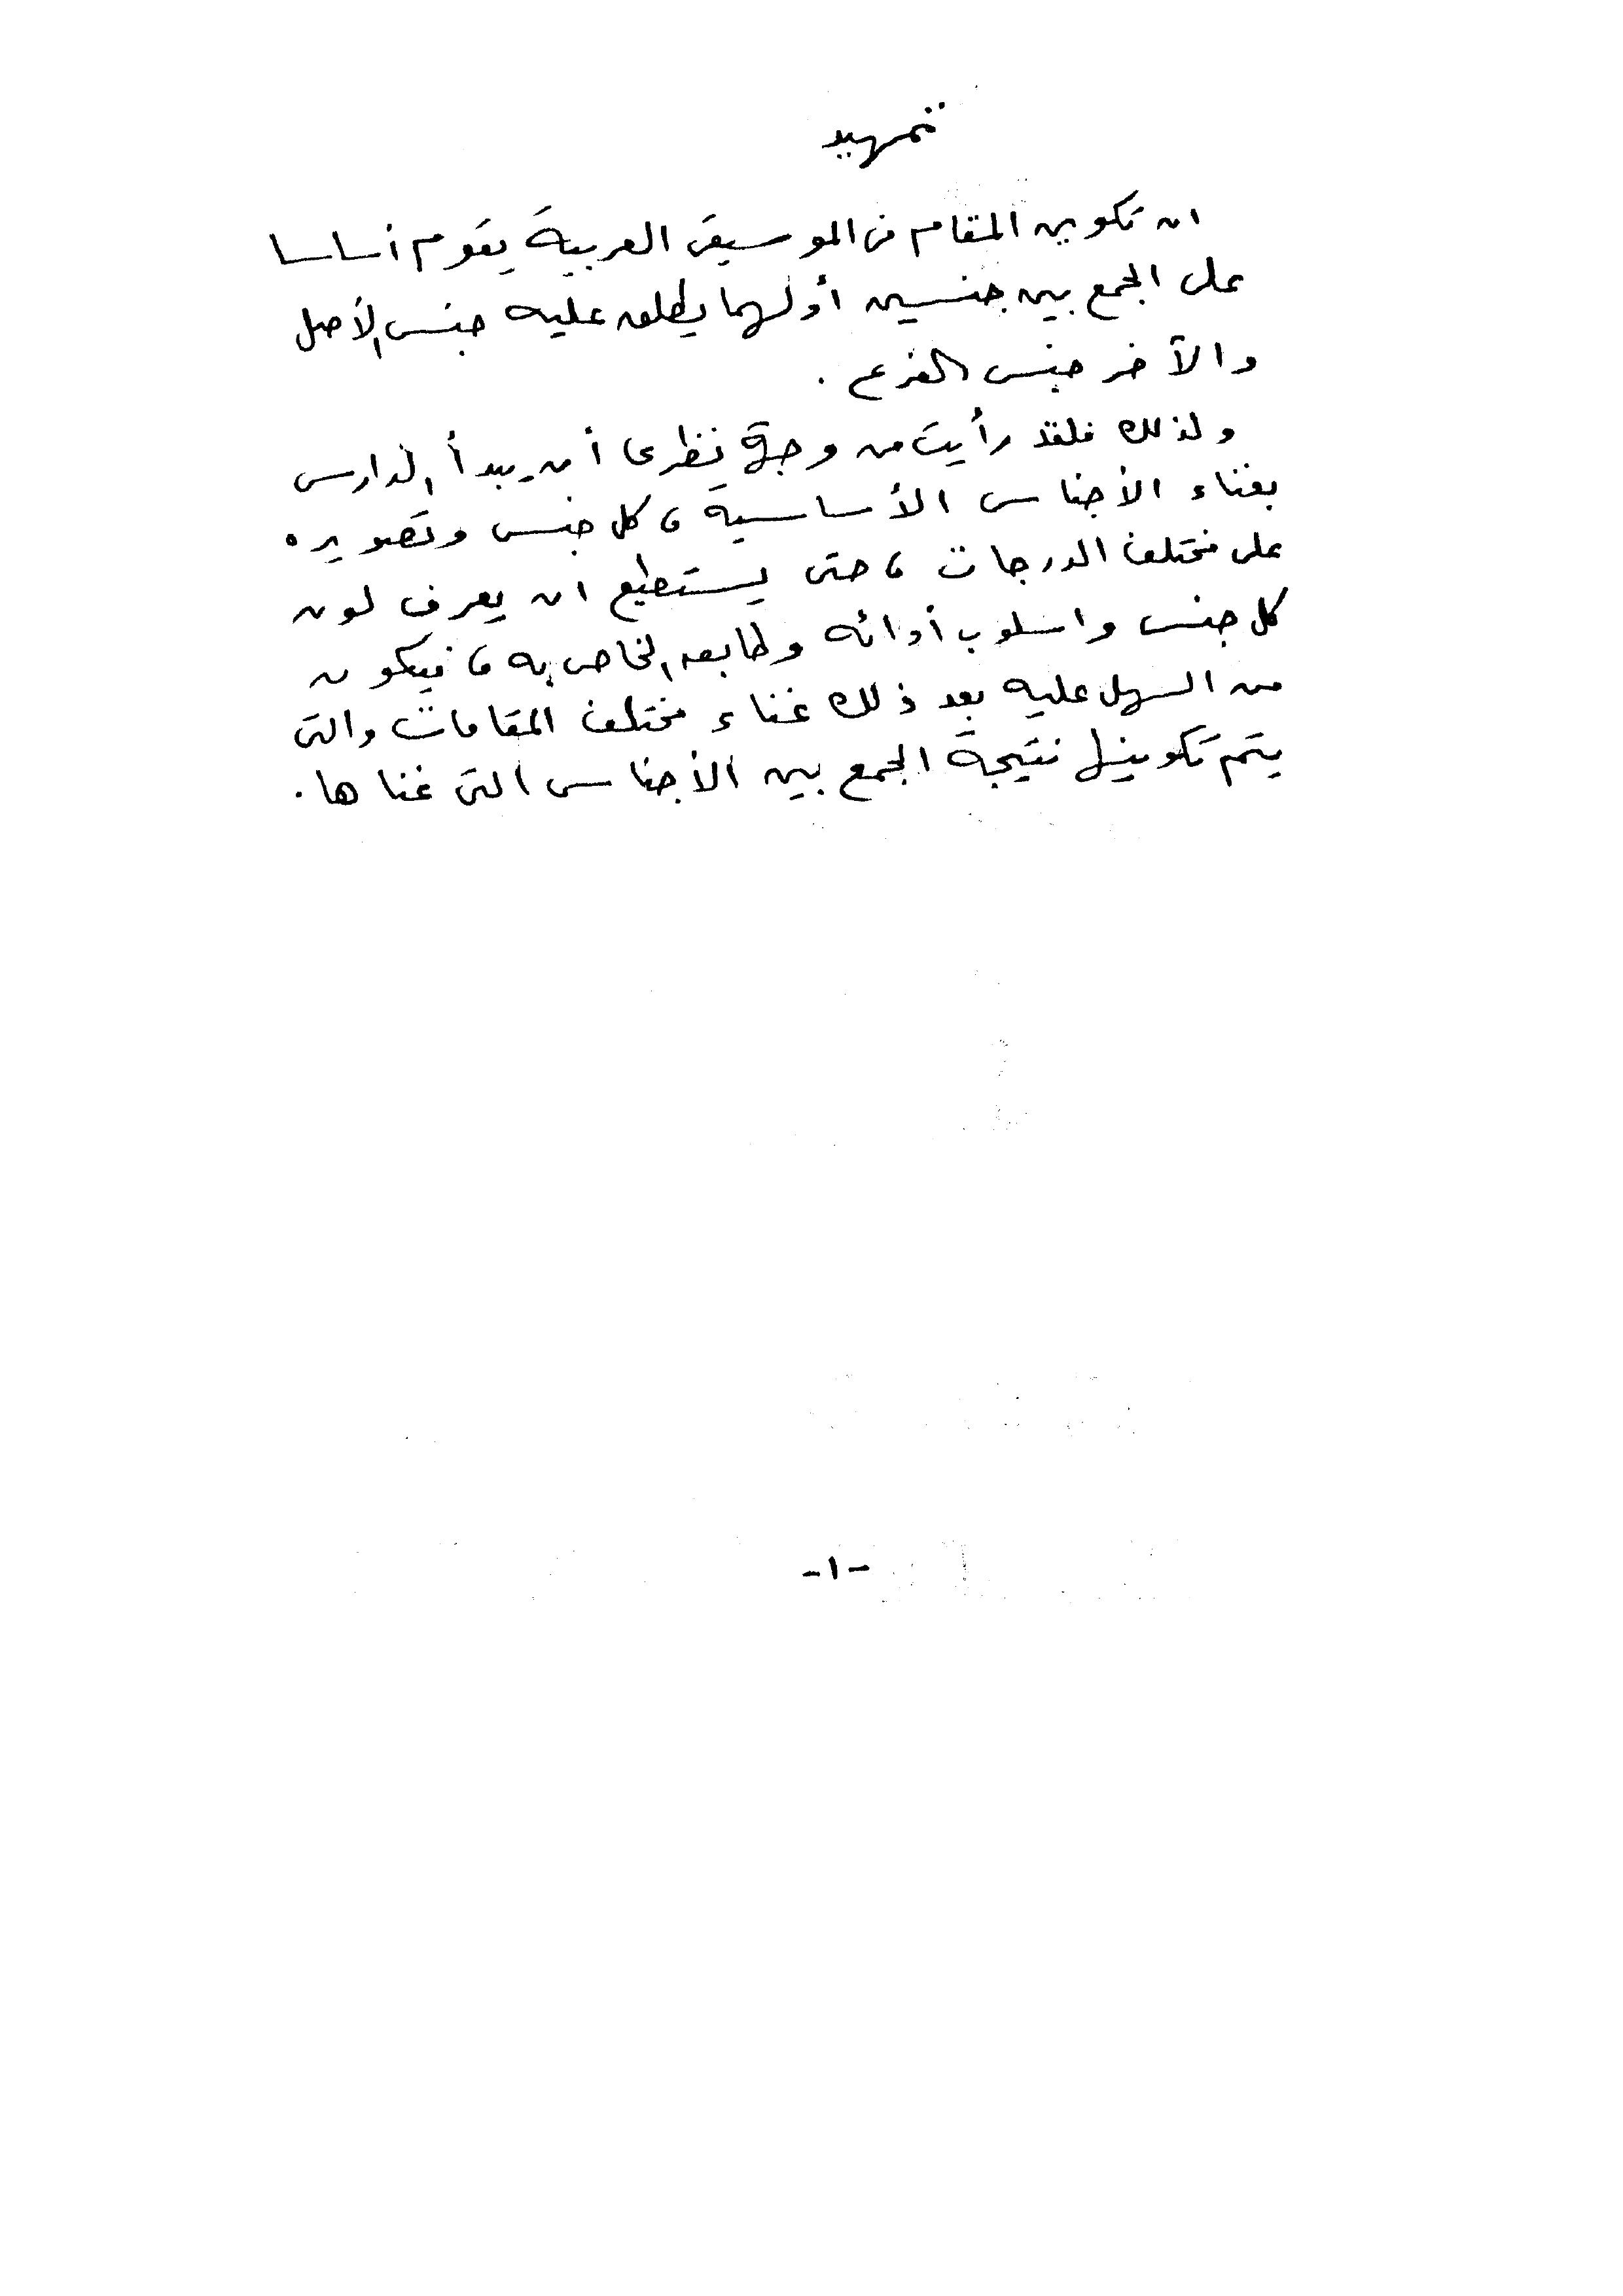 تمهيد
ان تكوين المقام فى الموسيقى العربية يقوم أساسا
على الجمع بين جنسين أولهما يطلق عليه جنس الأصل
والآخر جنس الفرع .
ولذلك فلقد رأيت من وجهة نظرى أن يبدأ الدارس
بغناء الأجناس الأساسية ، كل جنس وتصويره
على مختلف الدرجات ، حتى يستطيع ان يعرف لون
كل جنس واسلوب أدائه وطابعه الخاص به ، فيكون
من السهل عليه بعد ذلك غناء مختلف المقامات والتى
يتم تكوينها نتيجة الجمع بين الأجناس التى غناها .
-١-